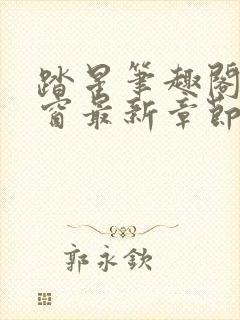 踏星笔趣阁
窗最新章节
郭永钦